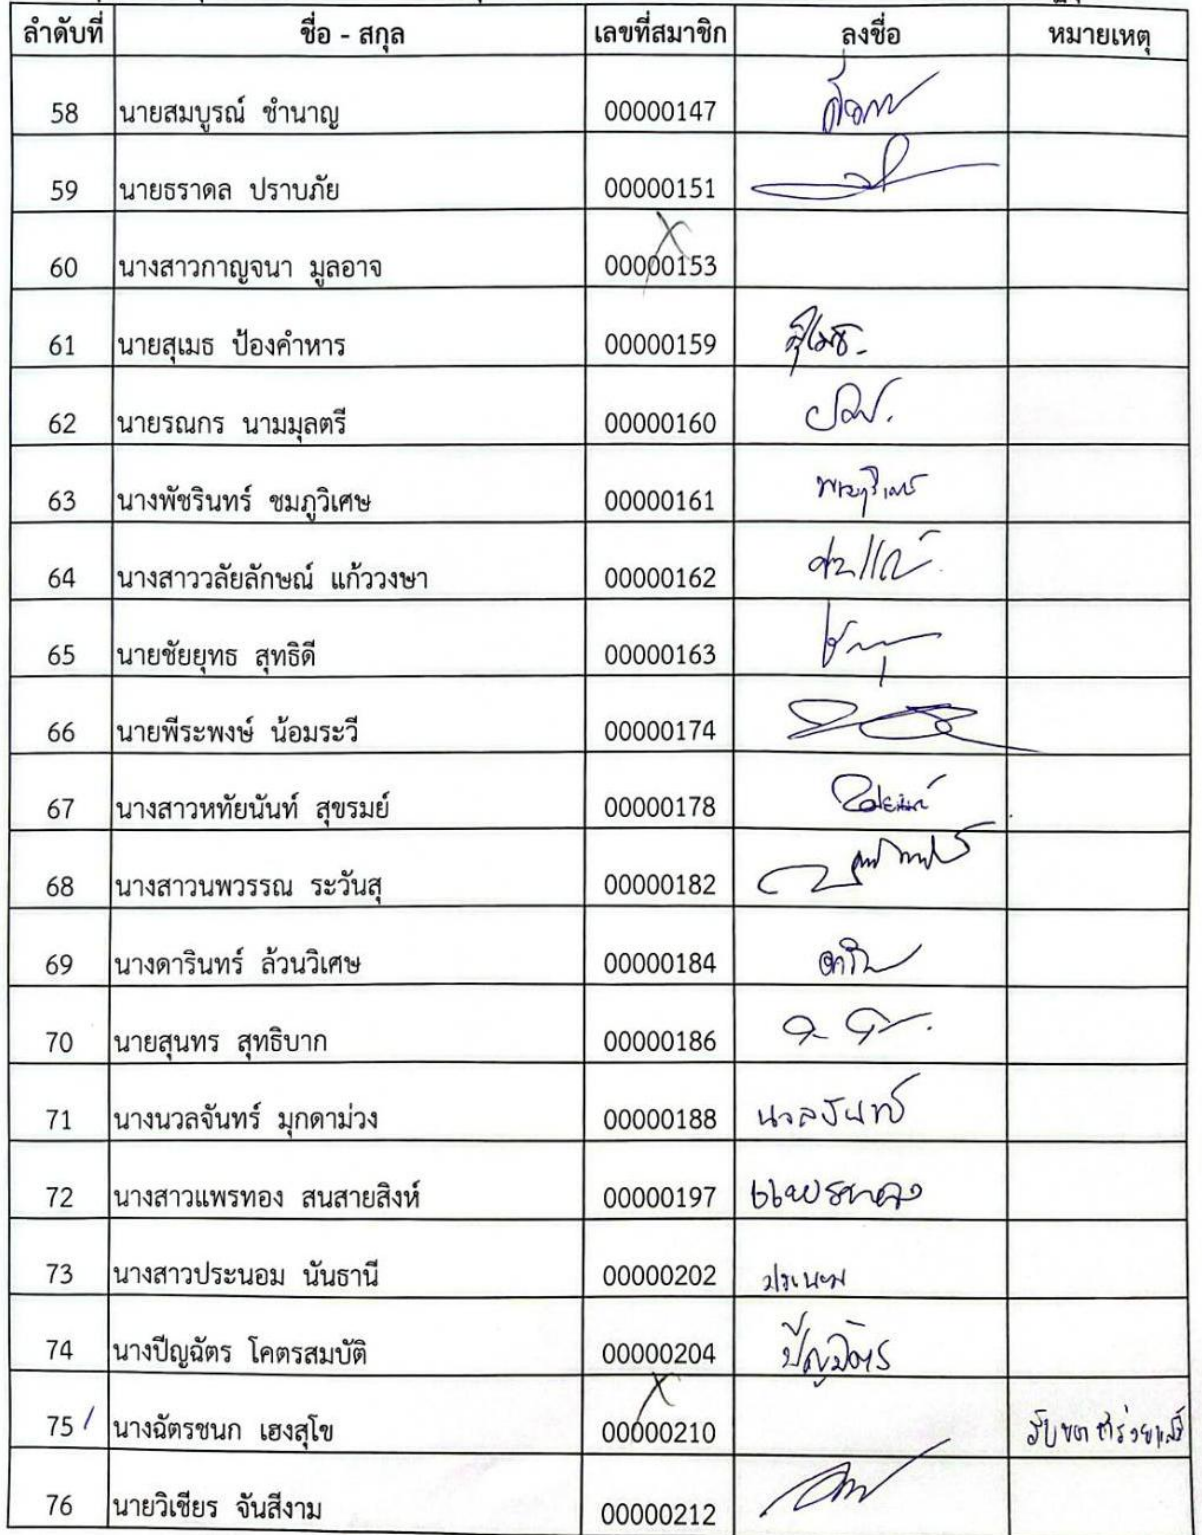 ลำดับที่ ชื่อ - สกุล เลขที่สมาชิก ลงชื่อ หมายเหตุ
58 นายสมบูรณ์ ชำนาญ 00000147
59 นายธราดล ปราบภัย 00000151
60 นางสาวกาญจนา มูลอาจ 00000153
61 นายสุเมธ ป้องคำหาร 00000159 สุเมธ
62 นายรณกร นามมุลตรี 00000160
63 นางพัชรินทร์ ชมภูวิเศษ 00000161
64 นางสาววลัยลักษณ์ แก้ววงษา 00000162
65 นายชัยยุทธ สุทธิดี 00000163
66 นายพีระพงษ์ น้อมระวี 00000174
67 นางสาวหทัยนันท์ สุขรมย์ 00000178
68 นางสาวนพวรรณ ระวันสุ 00000182
69 นางดารินทร์ ล้วนวิเศษ 00000184
70 นายสุนทร สุทธิบาก 00000186
71 นางนวลจันทร์ มุกดาม่วง 00000188 นวลจันทร์
72 นางสาวแพรทอง สนสายสิงห์ 00000197 แพรทอง
73 นางสาวประนอม นันธานี 00000202 ประนอม
74 นางปีญฉัตร โคตรสมบัติ 00000204 ปีญฉัตร
75 นางฉัตรชนก เฮงสุโข 00000210
76 นายวิเชียร จันสีงาม 00000212